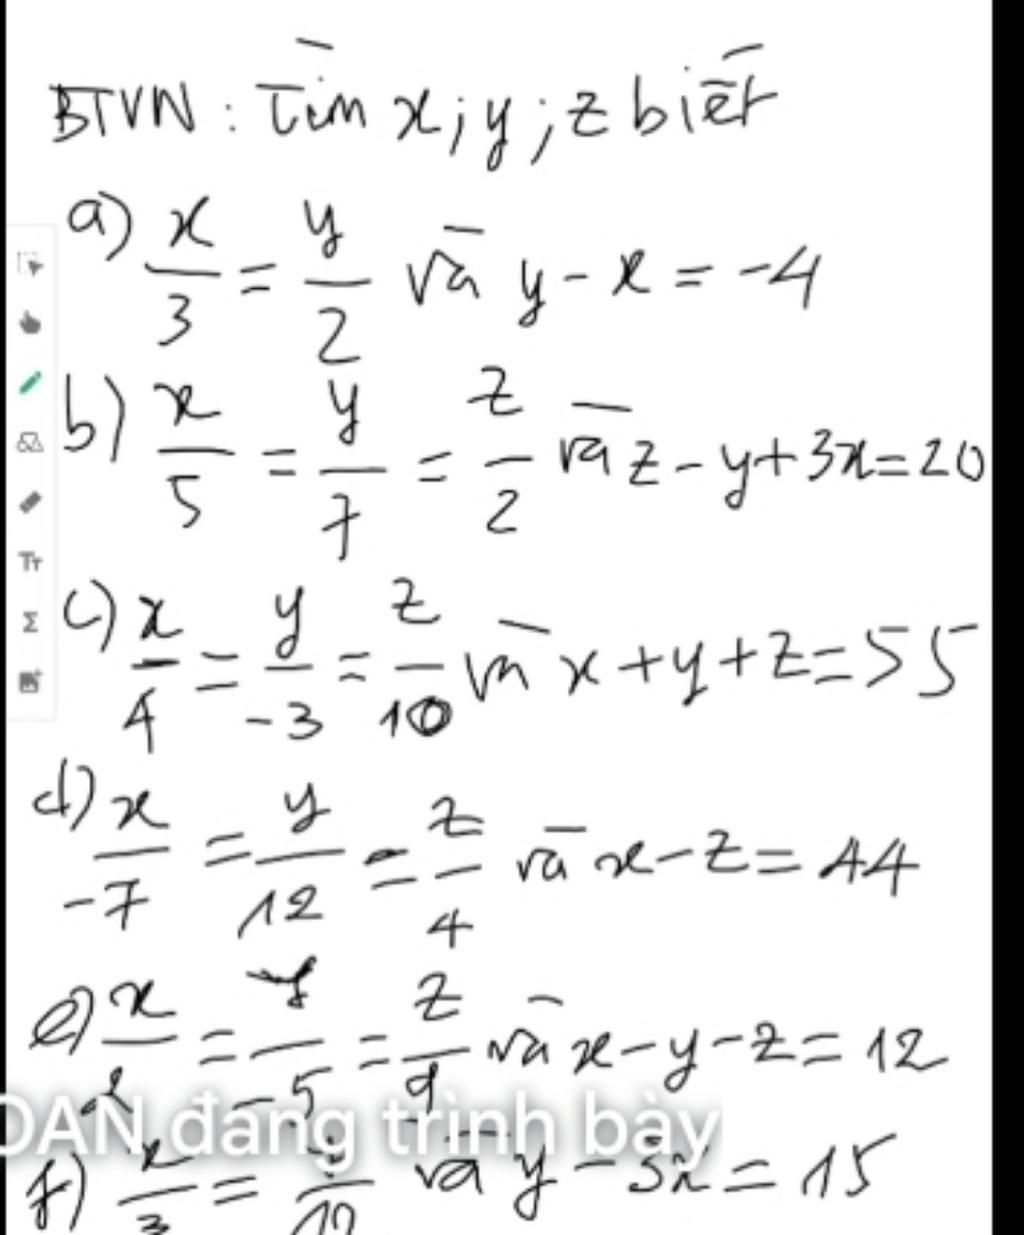 BTVN: Tìm x; y; z biết
a) x/3 = y/2 và y - x = -4
b) x/5 = y/7 = z/2 và z - y + 3x = 20
c) x/4 = y/-3 = z/10 và x + y + z = 55
d) x/-7 = y/12 = z/4 và x - z = 44
e) x/2 = y/-5 = z/9 và x - y - z = 12
OAN đang trình bày
f) x/3 = y/10 và y - 3x = 15